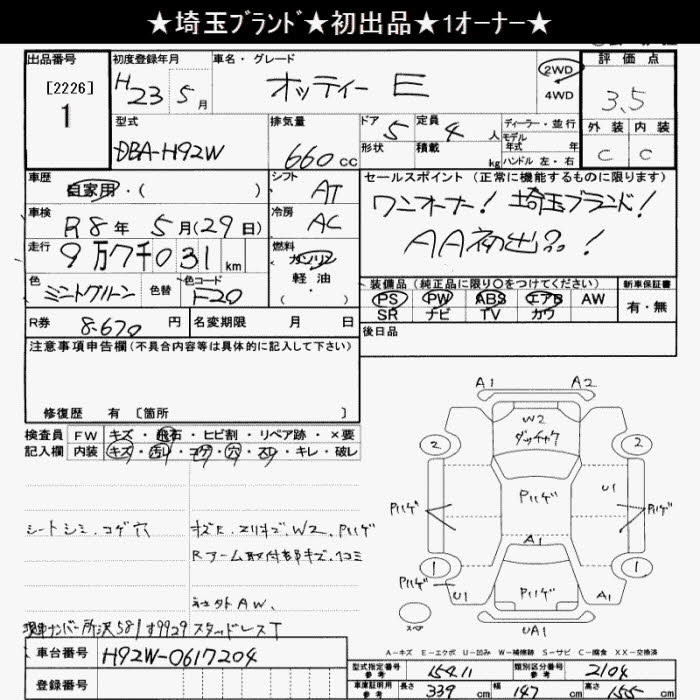 ★埼玉ﾌﾞﾗﾝﾄﾞ★初出品★1オーナー★
出品番号 初度登録年月 車名・グレード 評価点
[2226] H23 5月 オッティー E 2WD 3.5
1 4WD
型式 排気量 ドア 5 定員 4人 ディーラー・並行 外装 内装
DBA-H92W 660cc 形状 積載 kg モデル年式 年式 C C
ハンドル 左・右
車歴 自家用・( ) シフト AT セールスポイント (正常に機能するものに限ります)
車検 R8年 5月(29日) 冷房 AC ワンオーナー! 埼玉ブランド!
走行 9万7千031km 燃料 ガソリン AA初出品!
軽油
・( )
色 ミントグリーン 色替 色コード F20 装備品 (純正品に限り○をつけてください) 新車保証書
PS PW ABS エアB AW 有・無
SR ナビ TV カワ
R券 8,670円 名変期限 月 日 後日品
注意事項申告欄(不具合内容等は具体的に記入して下さい)
修復歴 有 〔箇所 〕
検査員 FW キズ・飛石・ヒビ割・リペア跡・×要
記入欄 内装 キズ・汚れ・コゲ・穴・スレ・キレ・破レ
シートシミ.コゲ穴 W2、Pハゲ
Rアーム取付部キズ.凹コミ
社外AW.
現車ナンバー所沢581す9929 スタッドレスT
A1 A2
W2
ダッチャク
2 2
Pハゲ U1
Pハゲ Pハゲ
A1
1 1
Pハゲ U1 Pハゲ A1
スペア UA1
A-キズ E-エクボ U-凹み W-補修跡 S-サビ C-腐食 XX-交換済
車台番号 H92W-0617204
登録番号
型式指定番号 参考 15411 類別区分番号 参考 2104
車庫証明用 参考 長さ 339cm 幅 147cm 高さ 155cm